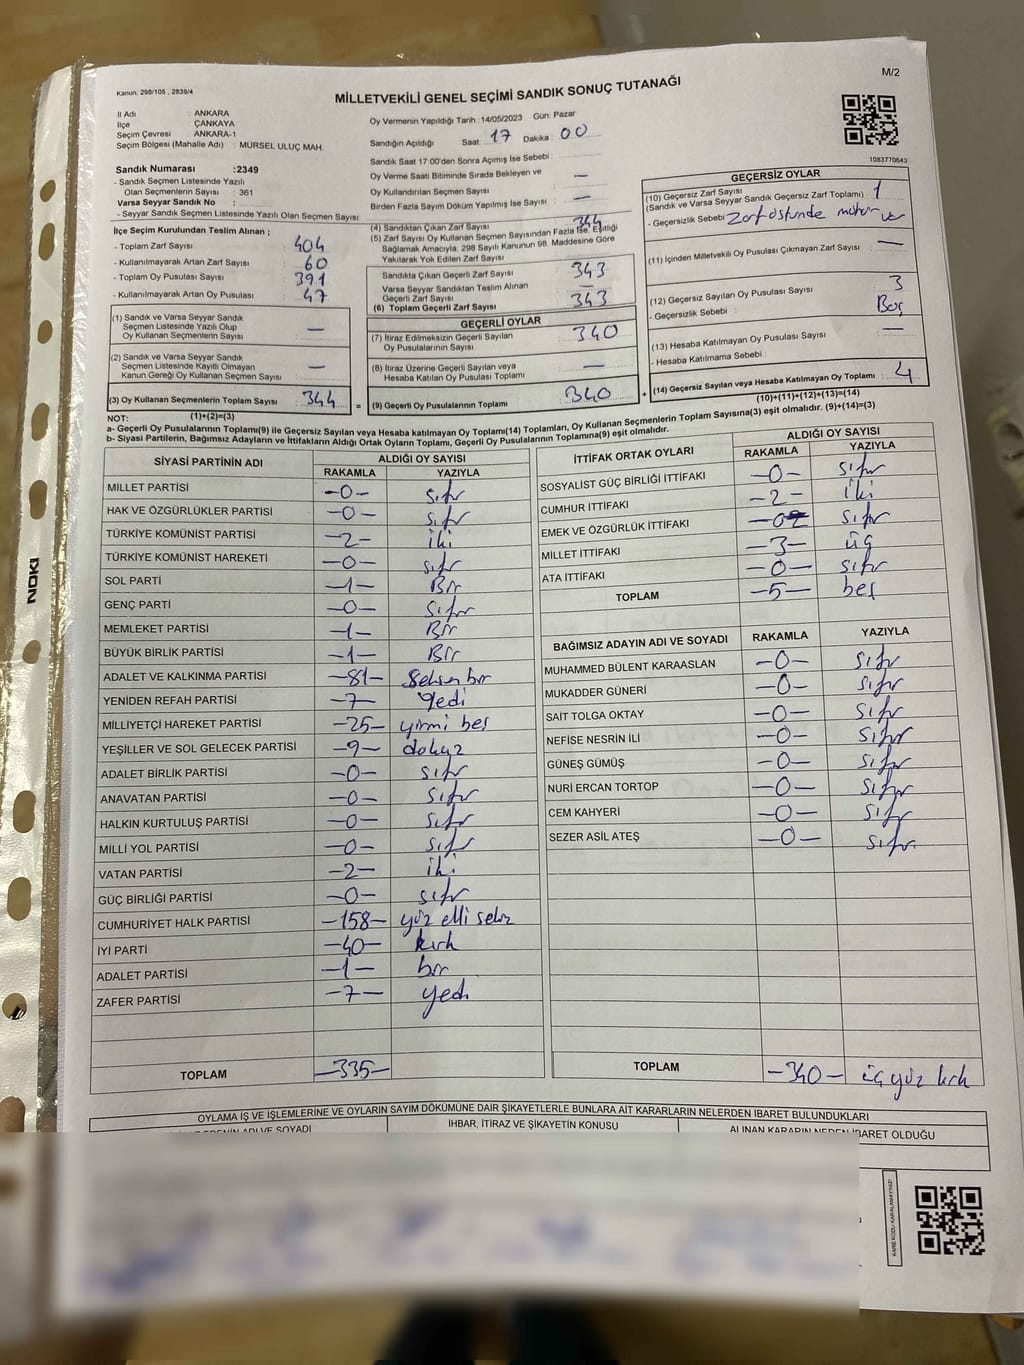 M/2
Kanun: 298/105 , 2839/4
MİLLETVEKİLİ GENEL SEÇİMİ SANDIK SONUÇ TUTANAĞI
İl Adı : ANKARA
İlçe : ÇANKAYA
Seçim Çevresi : ANKARA-1
Seçim Bölgesi (Mahalle Adı) : MÜRSEL ULUÇ MAH.
Sandık Numarası :2349
- Sandık Seçmen Listesinde Yazılı
Olan Seçmenlerin Sayısı : 361
Varsa Seyyar Sandık No :
- Seyyar Sandık Seçmen Listesinde Yazılı Olan Seçmen Sayısı:
İlçe Seçim Kurulundan Teslim Alınan ;
- Toplam Zarf Sayısı : 404
- Kullanılmayarak Artan Zarf Sayısı : 60
- Toplam Oy Pusulası Sayısı : 391
- Kullanılmayarak Artan Oy Pusulası : 47
(1) Sandık ve Varsa Seyyar Sandık
Seçmen Listesinde Yazılı Olup
Oy Kullanan Seçmenlerin Sayısı : —
(2) Sandık ve Varsa Seyyar Sandık
Seçmen Listesinde Kayıtlı Olmayan
Kanun Gereği Oy Kullanan Seçmen Sayısı : —
(3) Oy Kullanan Seçmenlerin Toplam Sayısı : 344 =
Oy Vermenin Yapıldığı Tarih :14/05/2023 Gün: Pazar
Sandığın Açıldığı Saat : 17 Dakika : 00
Sandık Saat 17:00'den Sonra Açılmış İse Sebebi :
Oy Verme Saati Bitiminde Sırada Bekleyen ve
Oy Kullandırılan Seçmen Sayısı : —
Birden Fazla Sayım Döküm Yapılmış İse Sayısı : —
(4) Sandıktan Çıkan Zarf Sayısı : 344
(5) Zarf Sayısı Oy Kullanan Seçmen Sayısından Fazla İse, Eşitliği
Sağlamak Amacıyla, 298 Sayılı Kanunun 98. Maddesine Göre
Yakılarak Yok Edilen Zarf Sayısı :
Sandıkta Çıkan Geçerli Zarf Sayısı : 343
Varsa Seyyar Sandıktan Teslim Alınan
Geçerli Zarf Sayısı : —
(6) Toplam Geçerli Zarf Sayısı : 343
GEÇERLİ OYLAR
(7) İtiraz Edilmeksizin Geçerli Sayılan
Oy Pusulalarının Sayısı : 340
(8) İtiraz Üzerine Geçerli Sayılan veya
Hesaba Katılan Oy Pusulası Toplamı : —
(9) Geçerli Oy Pusulalarının Toplamı : 340 +
1083770643
GEÇERSİZ OYLAR
(10) Geçersiz Zarf Sayısı : 1
(Sandık ve Varsa Seyyar Sandık Geçersiz Zarf Toplamı)
- Geçersizlik Sebebi : Zarf üstünde mühür var
(11) İçinden Milletvekili Oy Pusulası Çıkmayan Zarf Sayısı : —
(12) Geçersiz Sayılan Oy Pusulası Sayısı : 3
- Geçersizlik Sebebi : Boş
(13) Hesaba Katılmayan Oy Pusulası Sayısı : —
- Hesaba Katılmama Sebebi :
(14) Geçersiz Sayılan veya Hesaba Katılmayan Oy Toplamı : 4
(10)+(11)+(12)+(13)=(14)
NOT: (1)+(2)=(3)
a- Geçerli Oy Pusulalarının Toplamı(9) ile Geçersiz Sayılan veya Hesaba katılmayan Oy Toplamı(14) Toplamları, Oy Kullanan Seçmenlerin Toplam Sayısına(3) eşit olmalıdır. (9)+(14)=(3)
b- Siyasi Partilerin, Bağımsız Adayların ve İttifakların Aldığı Ortak Oyların Toplamı, Geçerli Oy Pusulalarının Toplamına(9) eşit olmalıdır.
SİYASİ PARTİNİN ADI ALDIĞI OY SAYISI
RAKAMLA YAZIYLA
MİLLET PARTİSİ -0- sıfır
HAK VE ÖZGÜRLÜKLER PARTİSİ -0- sıfır
TÜRKİYE KOMÜNİST PARTİSİ -2- iki
TÜRKİYE KOMÜNİST HAREKETİ -0- sıfır
SOL PARTİ -1- Bir
GENÇ PARTİ -0- Sıfır
MEMLEKET PARTİSİ -1- Bir
BÜYÜK BİRLİK PARTİSİ -1- Bir
ADALET VE KALKINMA PARTİSİ -81- Seksen bir
YENİDEN REFAH PARTİSİ -7- yedi
MİLLİYETÇİ HAREKET PARTİSİ -25- yirmi beş
YEŞİLLER VE SOL GELECEK PARTİSİ -9- dokuz
ADALET BİRLİK PARTİSİ -0- sıfır
ANAVATAN PARTİSİ -0- sıfır
HALKIN KURTULUŞ PARTİSİ -0- sıfır
MİLLİ YOL PARTİSİ -0- sıfır
VATAN PARTİSİ -2- iki
GÜÇ BİRLİĞİ PARTİSİ -0- sıfır
CUMHURİYET HALK PARTİSİ -158- yüz elli sekiz
İYİ PARTİ -40- kırk
ADALET PARTİSİ -1- bir
ZAFER PARTİSİ -7- yedi
TOPLAM -335-
İTTİFAK ORTAK OYLARI ALDIĞI OY SAYISI
RAKAMLA YAZIYLA
SOSYALİST GÜÇ BİRLİĞİ İTTİFAKI -0- sıfır
CUMHUR İTTİFAKI -2- iki
EMEK VE ÖZGÜRLÜK İTTİFAKI -0- sıfır
MİLLET İTTİFAKI -3- üç
ATA İTTİFAKI -0- sıfır
TOPLAM -5- beş
BAĞIMSIZ ADAYIN ADI VE SOYADI RAKAMLA YAZIYLA
MUHAMMED BÜLENT KARAASLAN -0- sıfır
MUKADDER GÜNERİ -0- sıfır
SAİT TOLGA OKTAY -0- sıfır
NEFİSE NESRİN İLİ -0- sıfır
GÜNEŞ GÜMÜŞ -0- sıfır
NURİ ERCAN TORTOP -0- sıfır
CEM KAHYERİ -0- sıfır
SEZER ASİL ATEŞ -0- sıfır
TOPLAM -340- üç yüz kırk
OYLAMA İŞ VE İŞLEMLERİNE VE OYLARIN SAYIM DÖKÜMÜNE DAİR ŞİKAYETLERLE BUNLARA AİT KARARLARIN NELERDEN İBARET BULUNDUKLARI
ADI VE SOYADI İHBAR, İTİRAZ VE ŞİKAYETİN KONUSU ALINAN KARARIN NEDEN İBARET OLDUĞU
KARE KODU KARALAMAYINIZ!
NOKI